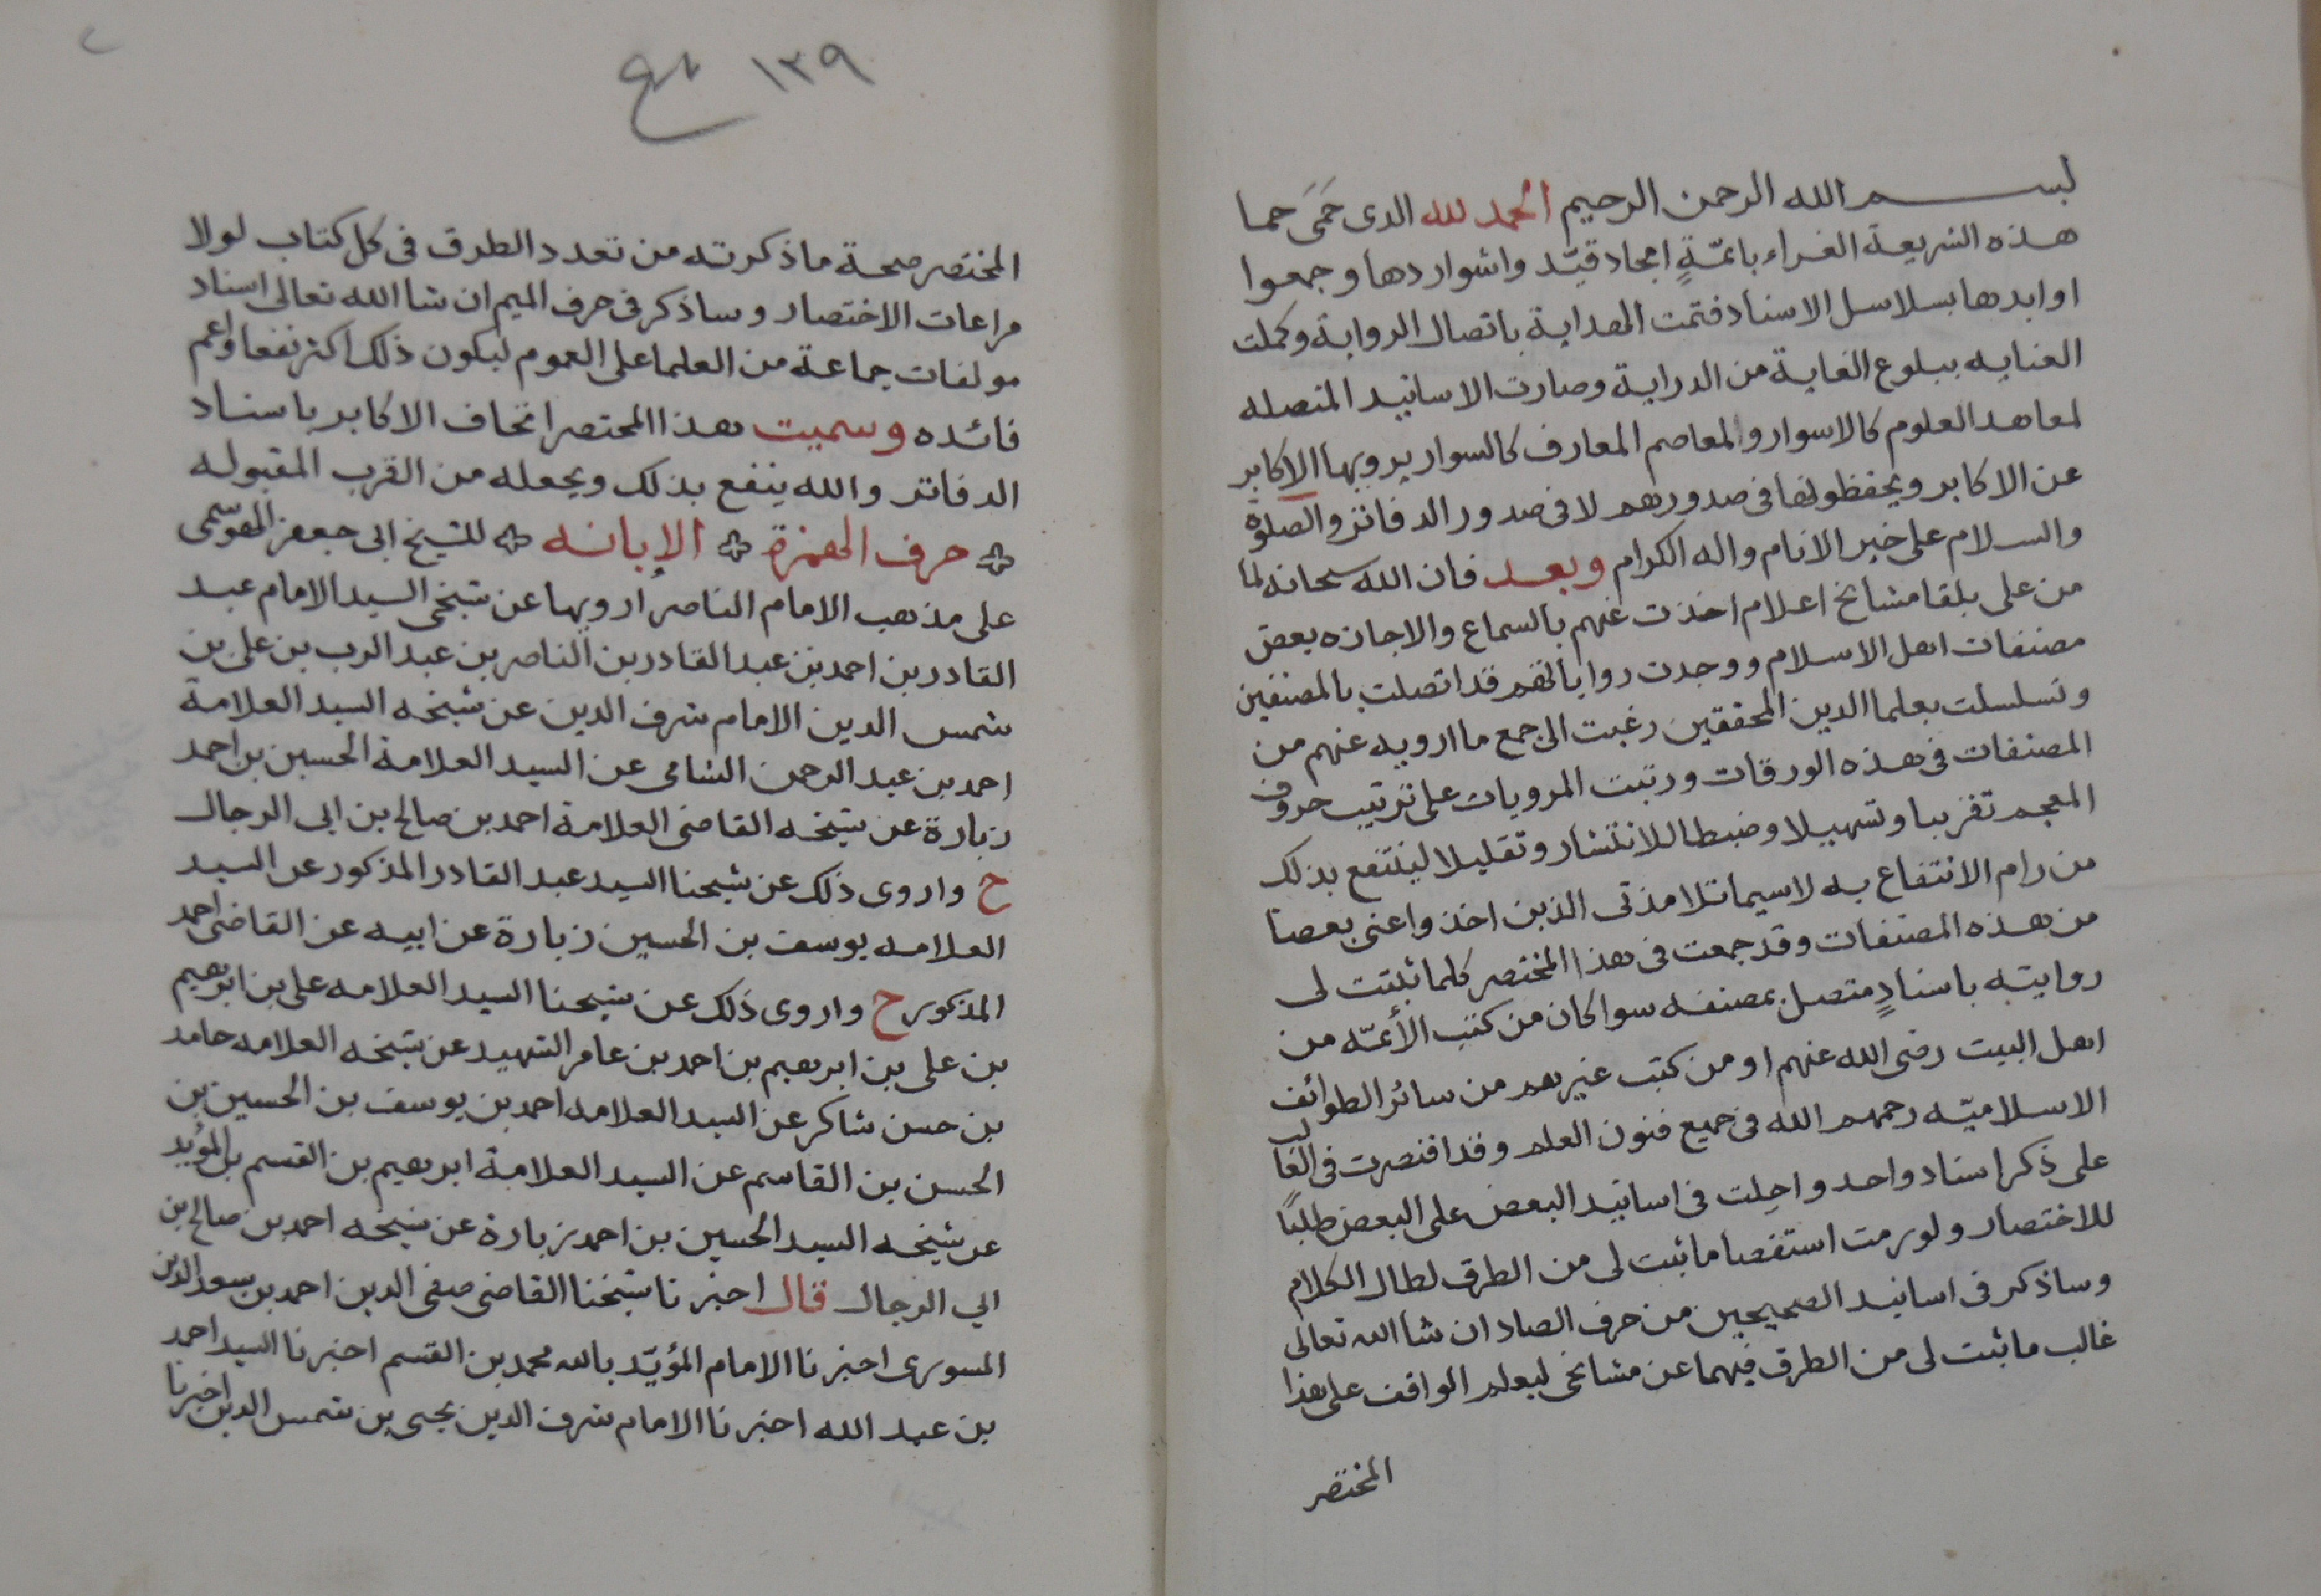 بسم الله الرحمن الرحيم الحمد لله الدى حَمَى حما
هذه الشريعة الغراء بائمّةٍ امجاد قيّد واشواردها وجمعوا
اوابدها بسلاسل الاسناد فتمت الهداية باتصال الرواية وكملت
العنايه ببلوع الغاية من الدراية وصارت الاسانيد المتصله
لمعاهد العلوم كالاسوار والمعاصم المعارف كالسوار يرويها الاكابر
عن الاكابر ويحفظونها فى صدورهم لا فى صدور الدفاتر والصلوة
والسلام على خير الانام واله الكرام وبعد فان الله سحانه لما
من على بلقا مشائخ اعلام اخذت عنهم بالسماع والاجازه بعض
مصنفات اهل الاسلام ووجدت رواياتهم قد اتصلت بالمصنفين
وتسلسلت بعلما الدين المحققين رغبت الى جمع ما ارويه عنهم من
المصنفات فى هذه الورقات ورتبت المرويات على ترتيب حروف
المعجم تقريبا وتسهيلا وضبطا للانتشار وتقليلا لينتفع بذلك
من رام الانتفاع به لاسيما تلامذتى الذين اخذوا عنى بعصا
من هذه المصنفات وقد جمعت فى هذا المختصر كلما ثبتت لى
روايته باسنادٍ متصل بمصنفه سوا كان من كتب الأئمّه من
اهل البيت رضى الله عنهم او من كتب غيرهم من سائر الطوائف
الاسلاميّه رحمهم الله فى جميع فنون العلم وقد اقتصرت فى الغالب
على ذكر اسناد واحد واحِلت فى اسانيد البعض على البعض طلبًا
للاختصار ولو رمت استقصا ما ثبت لى من الطرق لطال الكلام
وساذكر فى اسانيد الصحيحين من حرف الصاد ان شا الله تعالى
غالب ما ثبت لى من الطرق فيهما عن مشائخى ليعلم الواقف على هذا
المختصر
١٣٩
المختصر صحة ما ذكرته من تعدد الطرق فى كل كتاب لولا
مراعات الاختصار وساذكر فى حرف الميم ان شا الله تعالى اسناد
مولفات جماعة من العلما على العموم ليكون ذلك اكثر نفعا واعم
فائده وسميت هذا المختصر اتحاف الاكابر باسناد
الدفاتر والله ينفع بذلك ويجعله من القرب المقبوله
حرف الهمزة الإبانه للشيخ ابى جعفر الهوسمى
على مذهب الامام الناصر أرويها عن شيخى السيد الامام عبد
القادر بن احمد بن عبد القادر بن الناصر بن عبد الرب بن على بن
شمس الدين الامام شرف الدين عن شيخه السيد العلامة
احمد بن عبد الرحمن الشامى عن السيد العلامة الحسين بن احمد
زبارة عن شيخه القاضى العلامة احمد بن صالح بن ابى الرجال
ح واروى ذلك عن شيحنا السيد عبد القادر المذكور عن السيد
العلامه يوسف بن الحسين زبارة عن ابيه عن القاضى احمد
المذكور ح واروى ذلك عن شيحنا السيد العلامه على بن ابرهيم
بن على بن ابرهيم بن احمد بن عامر الشهيد عن شيخه العلامه حامد
بن حسن شاكر عن السيد العلامه احمد بن يوسف بن الحسين بن
الحسن بن القاسم عن السيد العلامة ابرهيم بن القسم بن المؤيد
عن شيخه السيد الحسين بن احمد زبارة عن شيخه احمد بن صالح بن
ابي الرجال قال اخبرنا شيخنا القاضى صفى الدين احمد بن سعد الدين
المسورى اخبرنا الامام المؤيّد بالله محمد بن القسم اخبرنا السيد احمد
بن عبد الله اخبرنا الامام شرف الدين يحيى بن شمس الدين اخبرنا